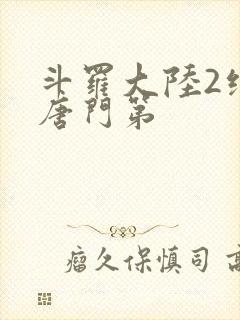 斗羅大陸2
唐門第
瘤久保慎司 高